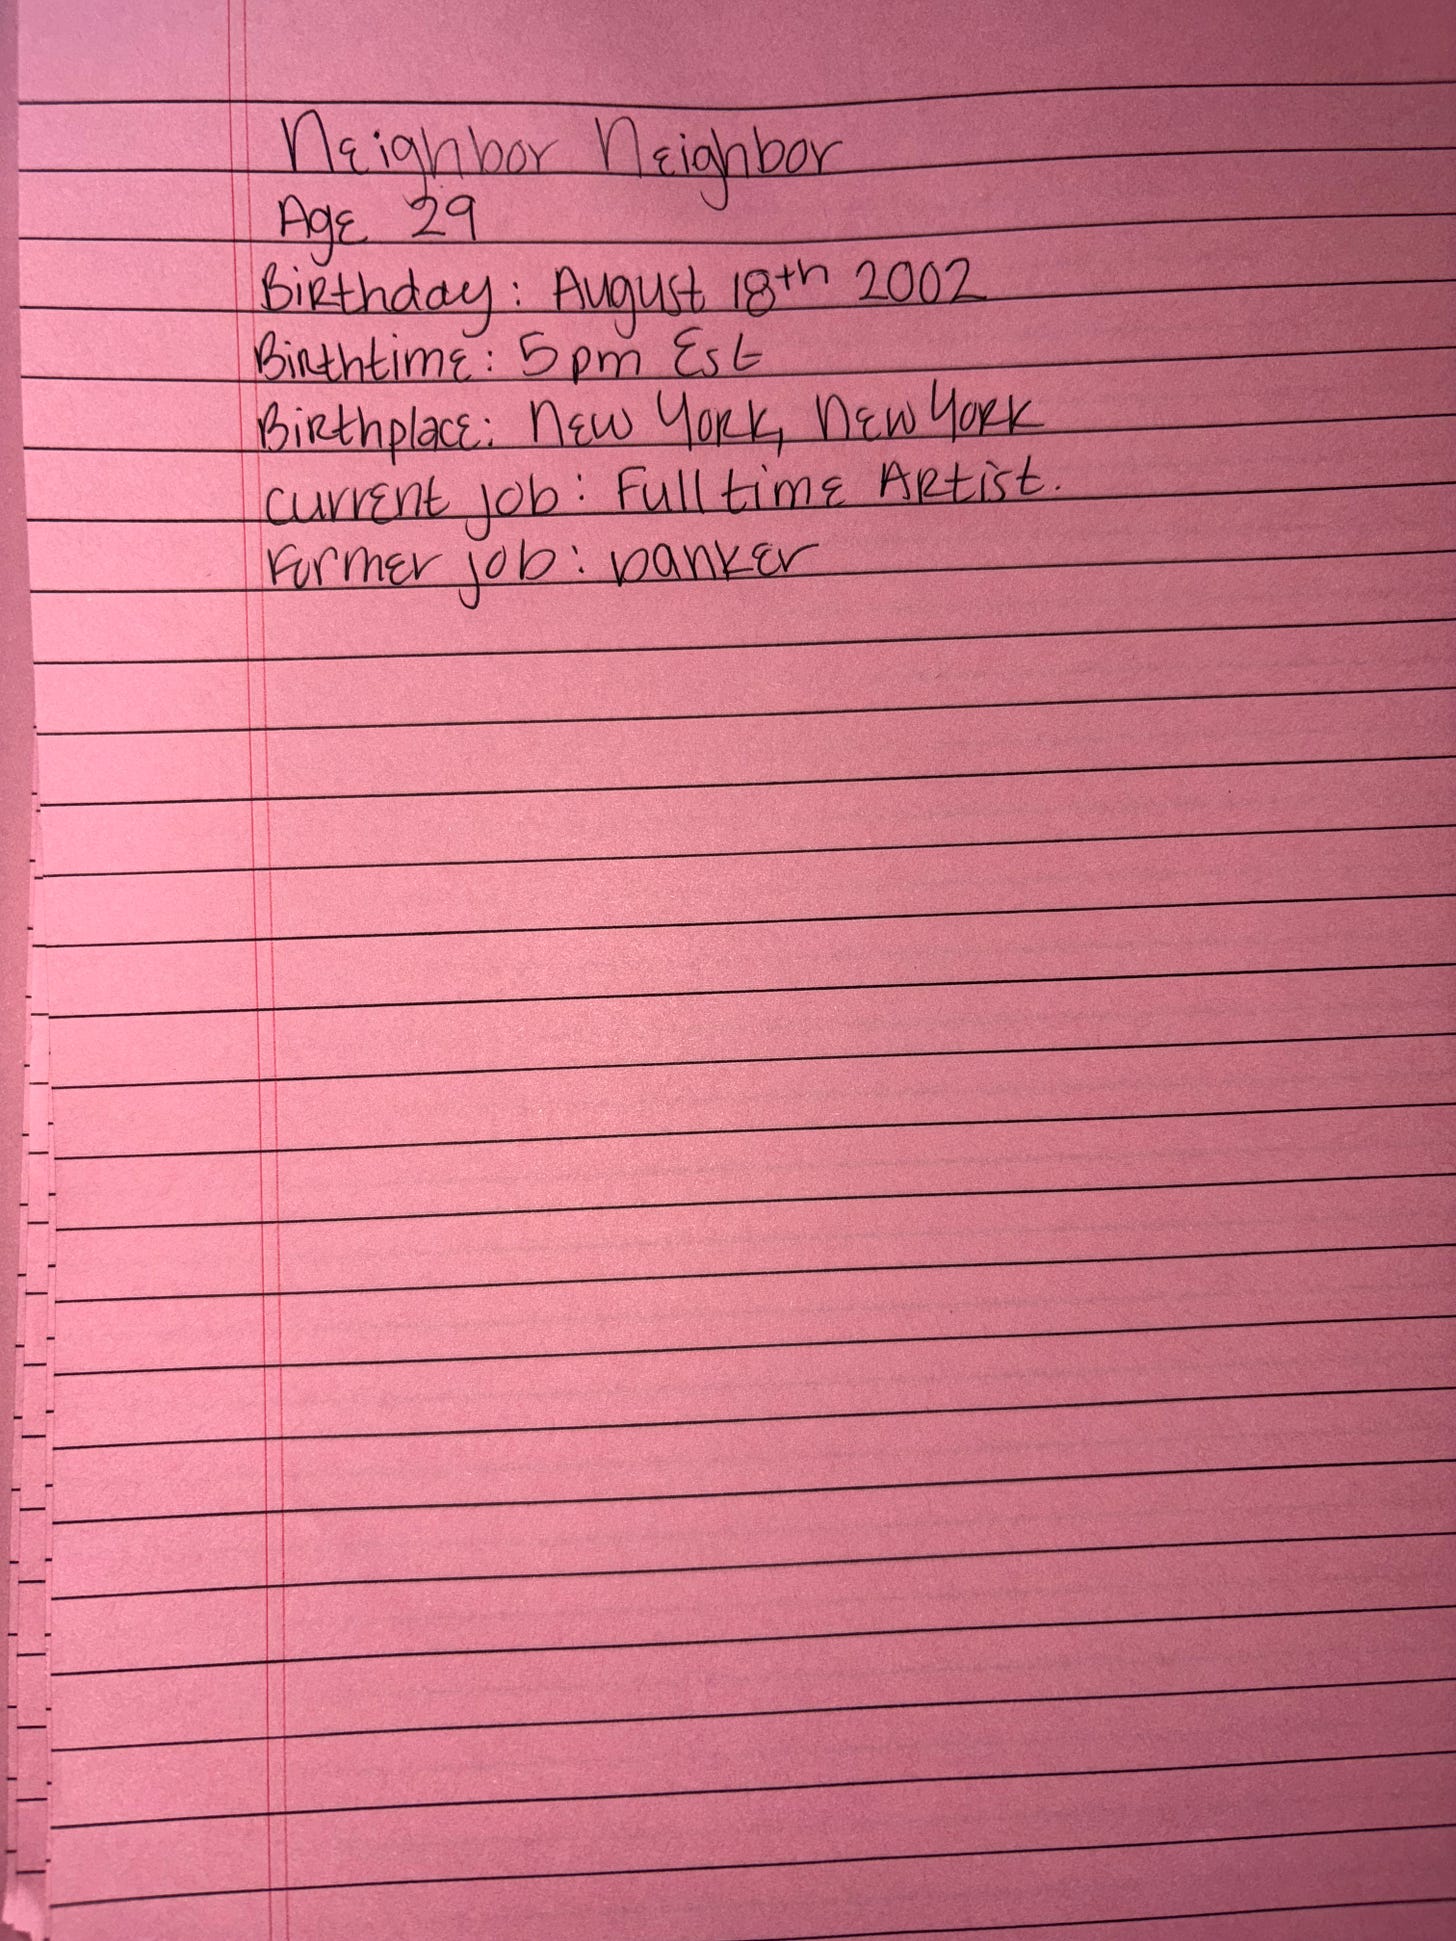 Neighbor Neighbor
Age 29
Birthday: August 18th 2002
Birthtime: 5pm Est
Birthplace: New York, New York
Current job: Full time Artist.
Former job: banker